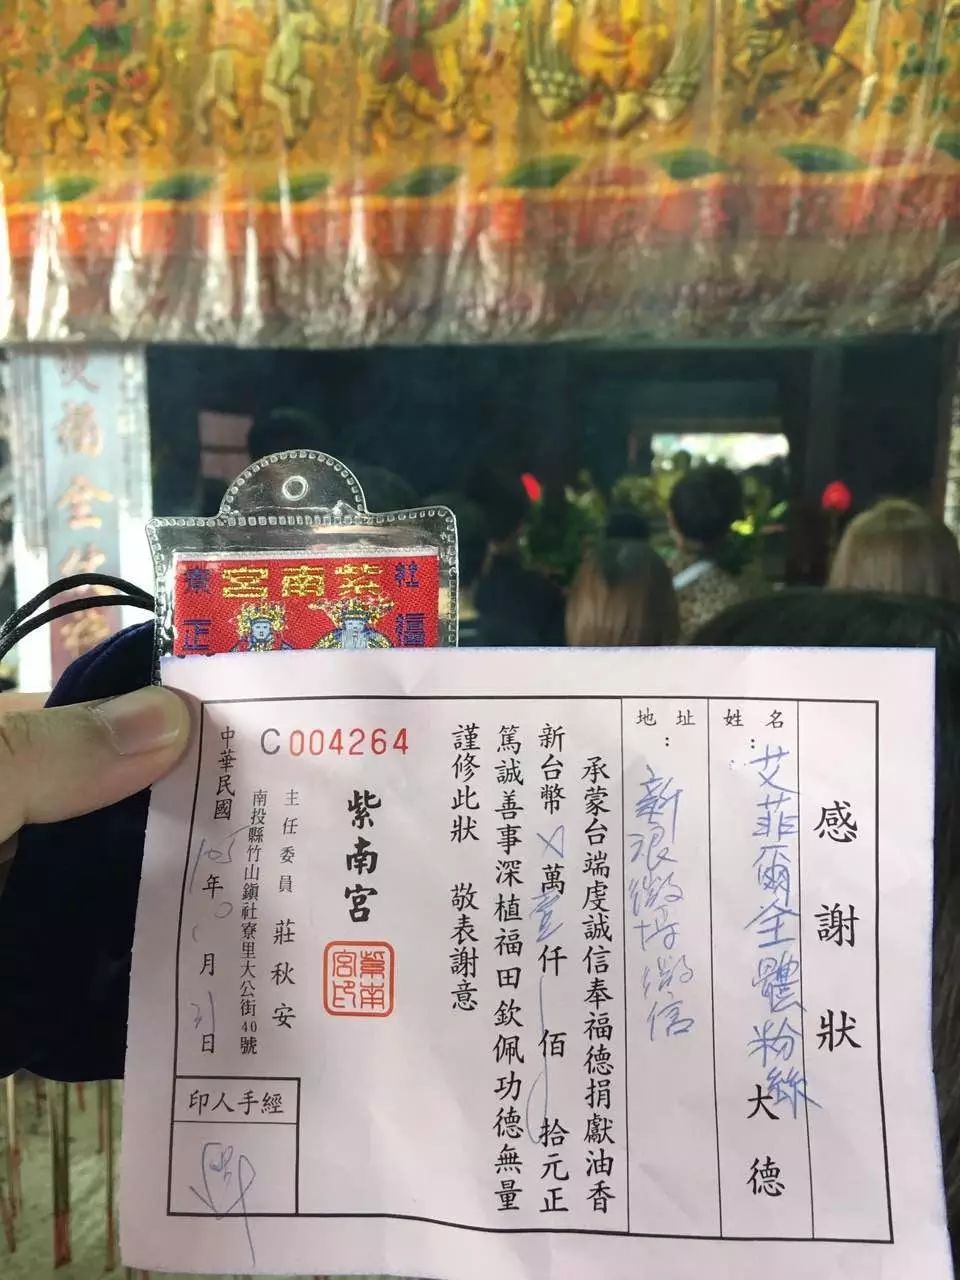 雙福全
紫南宮
社福
寮正
感謝狀
姓名：艾菲爾全體粉絲大德
地址：新浪微博微信
承蒙台端虔誠信奉福德捐獻油香
新台幣 萬壹仟 佰 拾元正
篤誠善事深植福田欽佩功德無量
謹修此狀 敬表謝意
C004264
紫南宮
紫南宮印
主任委員 莊秋安
南投縣竹山鎮社寮里大公街40號
中華民國105年 月31日
經手人印